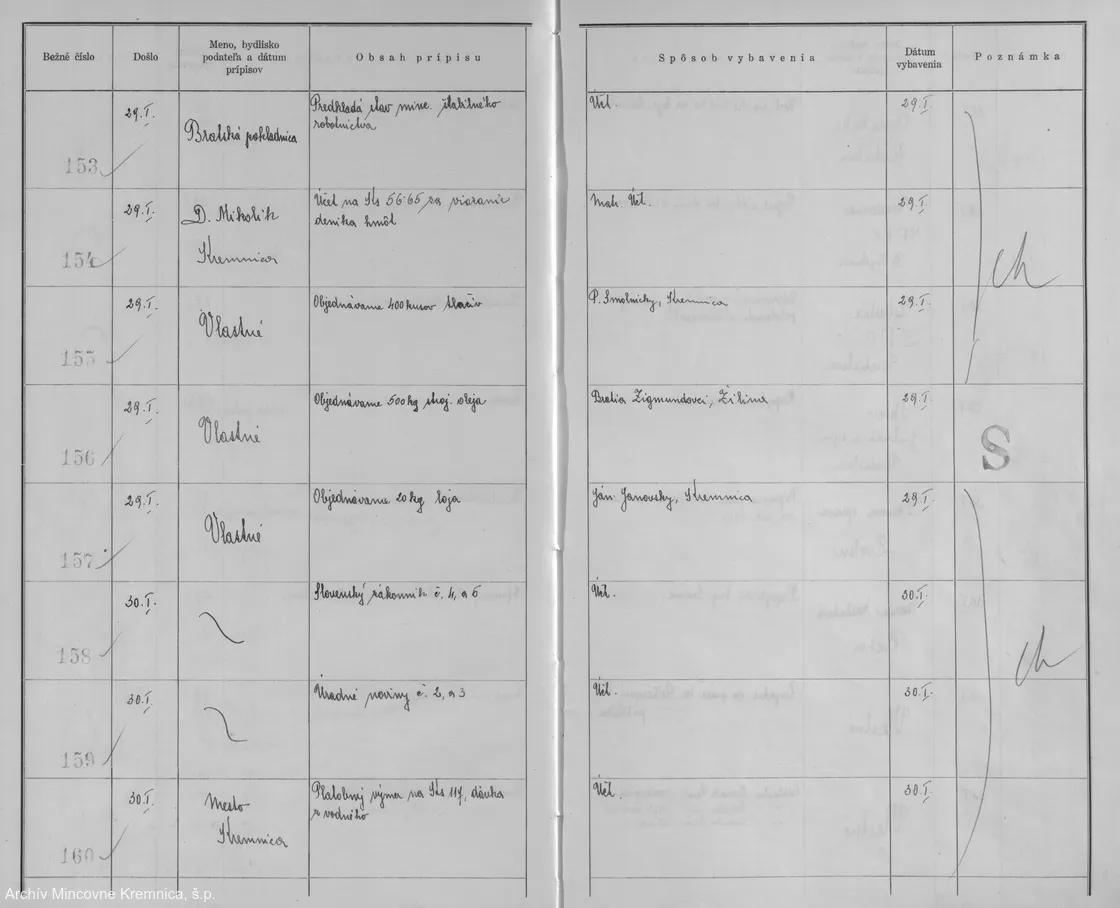 Bežné číslo
Došlo
Meno, bydlisko
podateľa a dátum
prípisov
Obsah prípisu
Spôsob vybavenia
Dátum
vybavenia
Poznámka
153
29.I.
Bratská pokladnica
Predkladá stav minc. štabilného
robotníctva
Účt.
29.I.
154
29.I.
D. Mikolik
Kremnica
Účet na Ks 56·65 za viazanie
denníka hmôt
Mat. Účt.
29.I.
ch
155
29.I.
Vlastné
Objednávame 400 kusov tlačív
P. Smolnicky, Kremnica
29.I.
156
29.I.
Vlastné
Objednávame 500 kg stroj. oleja
Bratia Zigmundovci, Žilina
29.I.
S
157
29.I.
Vlastné
Objednávame 20 kg loja
Ján Janovsky, Kremnica
29.I.
158
30.I.
Slovenský zákonník č. 4, a 5
Účt.
30.I.
ch
159
30.I.
Úradné noviny č. 2, a 3
Účt.
30.I.
160
30.I.
Mesto
Kremnica
Platobný výmer na Ks 117, dávka
z vodného
Účt.
30.I.
Archív Mincovne Kremnica, š.p.